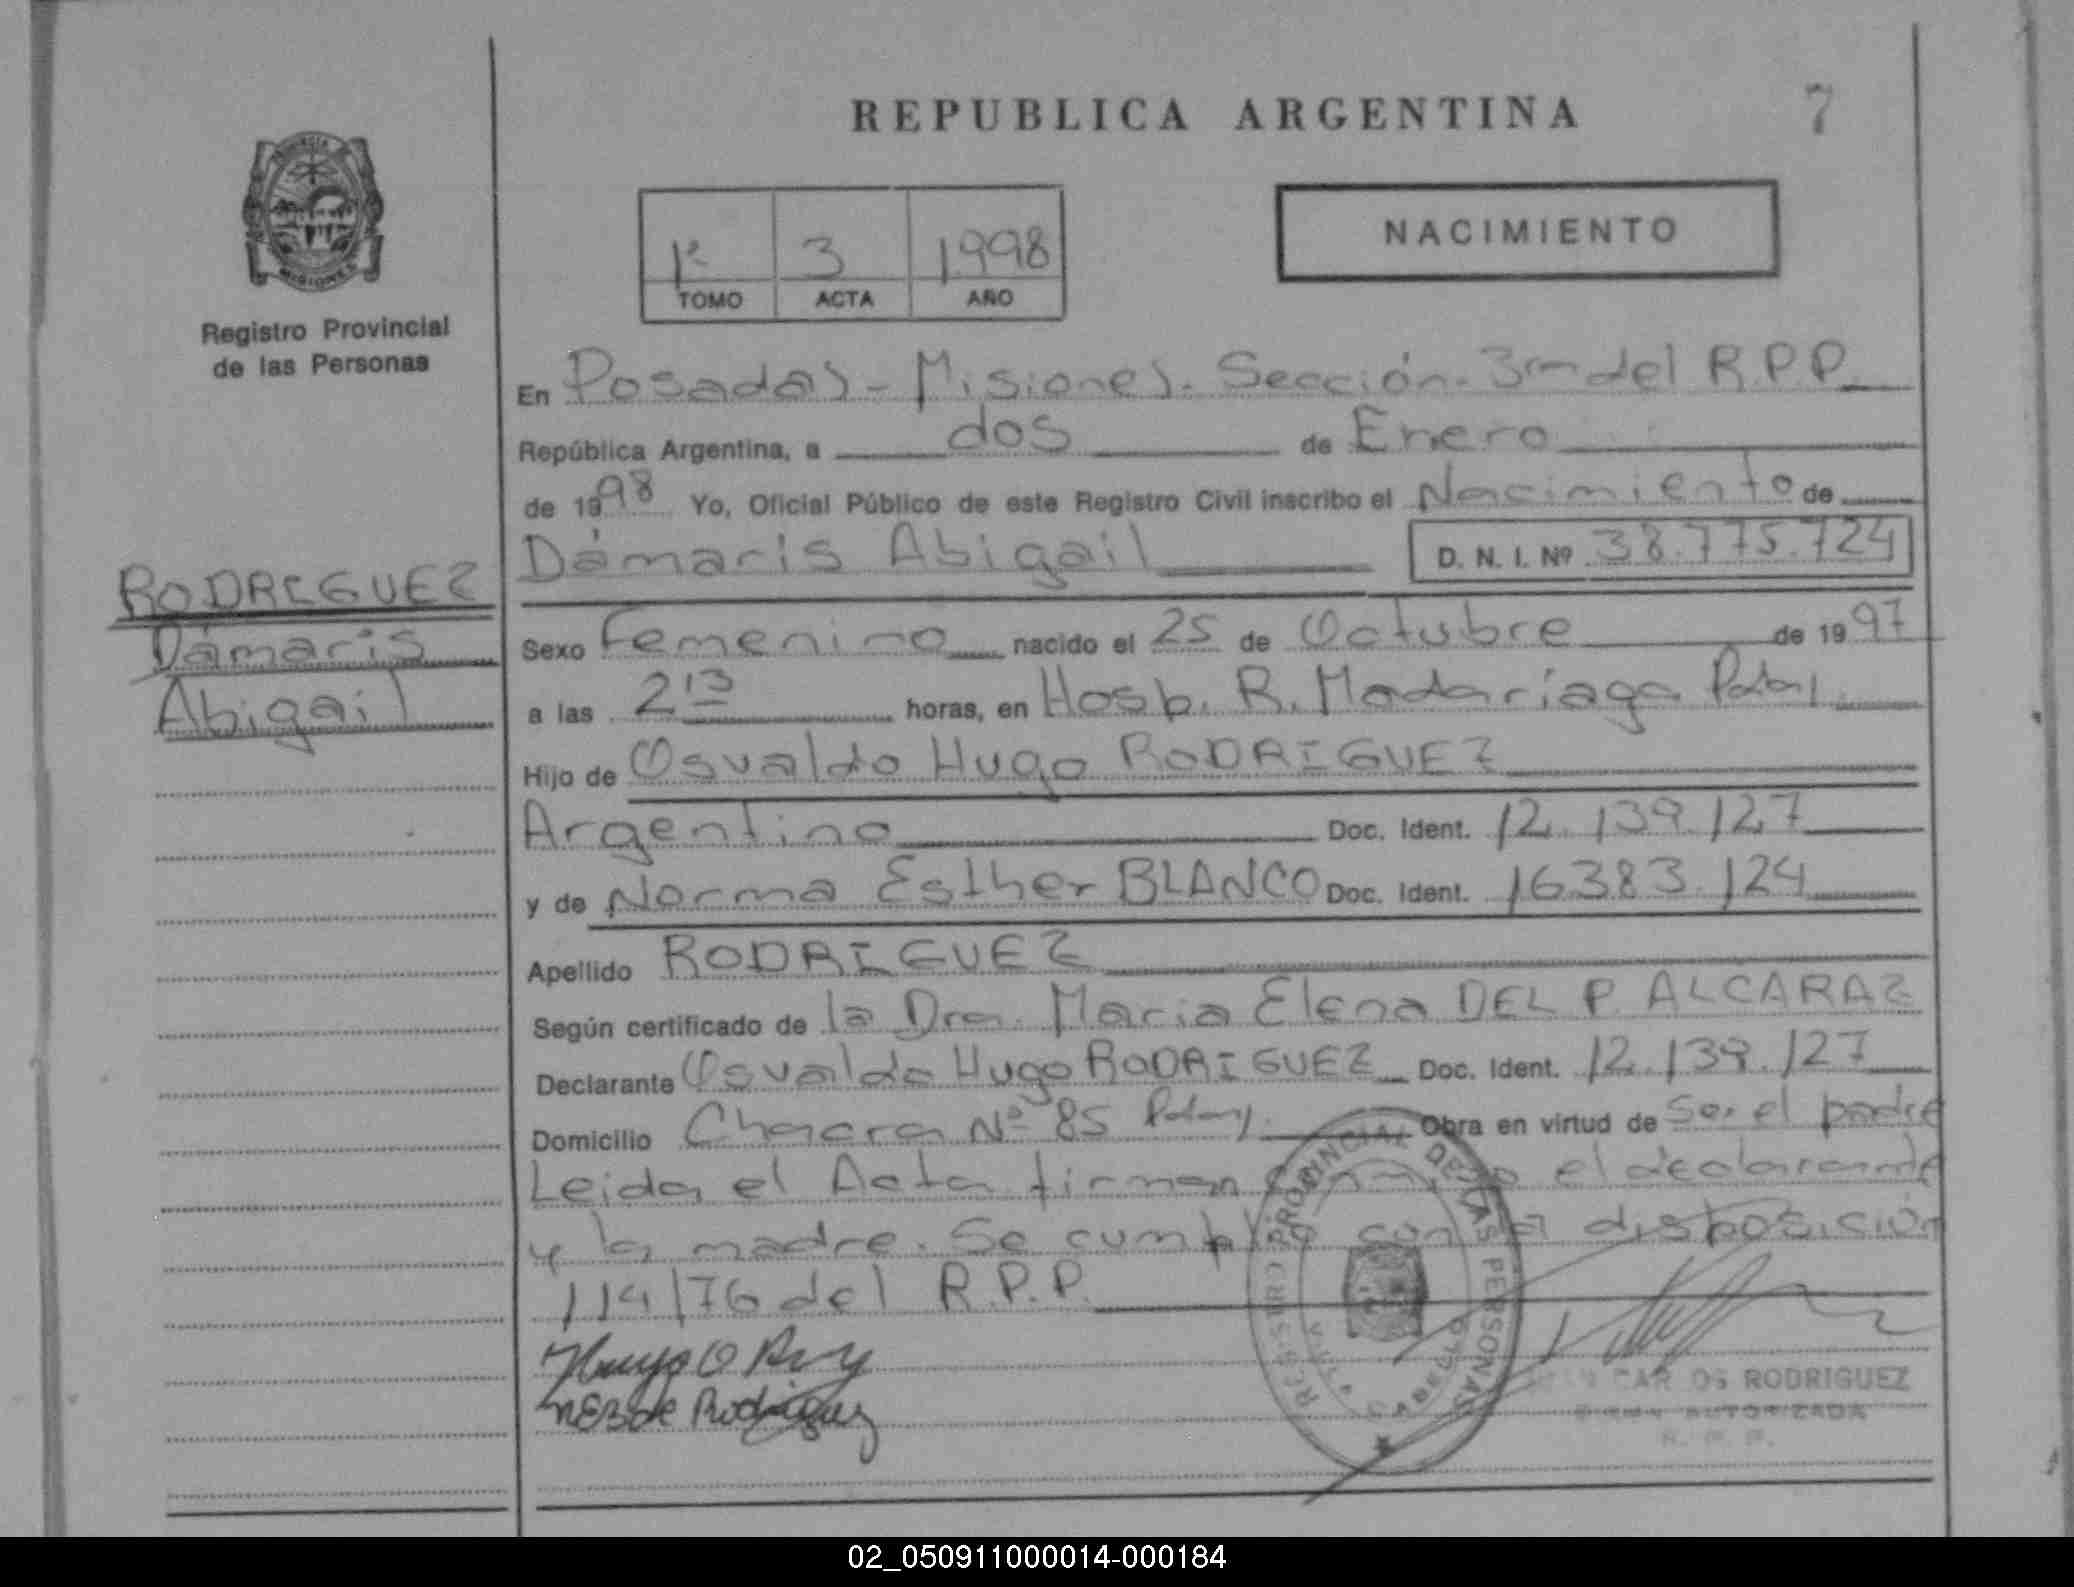 REPUBLICA ARGENTINA
7
MISIONES
Registro Provincial
de las Personas
3 1998
TOMO ACTA AÑO
NACIMIENTO
En Posadas - Misiones. Sección. 3ra del R.P.P.
República Argentina, a dos de Enero
de 1998 Yo, Oficial Público de este Registro Civil inscribo el Nacimiento de
Dámaris Abigail D. N. I. Nº 38.775.724
RODRIGUEZ
Dámaris
Abigail
Sexo Femenino nacido el 25 de Octubre de 1997
a las 2 13 horas, en Hosp. R. Madariaga Pdas.
Hijo de Osvaldo Hugo RODRIGUEZ
Argentino Doc. Ident. 12.139.127
y de Norma Esther BLANCO Doc. Ident. 16383.124
Apellido RODRIGUEZ
Según certificado de la Dra. Maria Elena DEL P. ALCARAZ
Declarante Osvaldo Hugo RODRIGUEZ Doc. Ident. 12.139.127
Domicilio Chacra Nº 85 Pdas. Obra en virtud de ser el padre
Leida el Acta firman conmigo el declarante
y la madre. Se cumplió con la disposición
114/76 del R.P.P.
REGISTRO PROVINCIAL DE LAS PERSONAS
Hugo O
NEB de Rodriguez
CARLOS RODRIGUEZ
FIRMA AUTORIZADA
R. P. P.
02_050911000014-000184